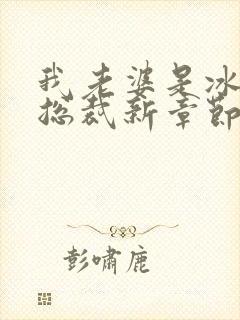 我老婆是冰
总裁新章节
彭啸鹿